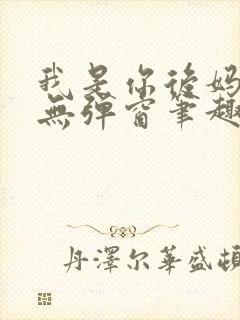 我是你後妈
無彈窗筆趣
丹澤尔華盛頓